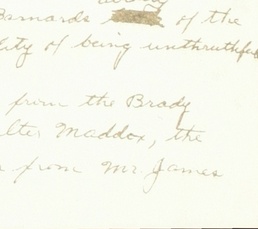 Barnards of the
City of being unthruthful
from the Brady
Walter Maddox, the
from Mr. James